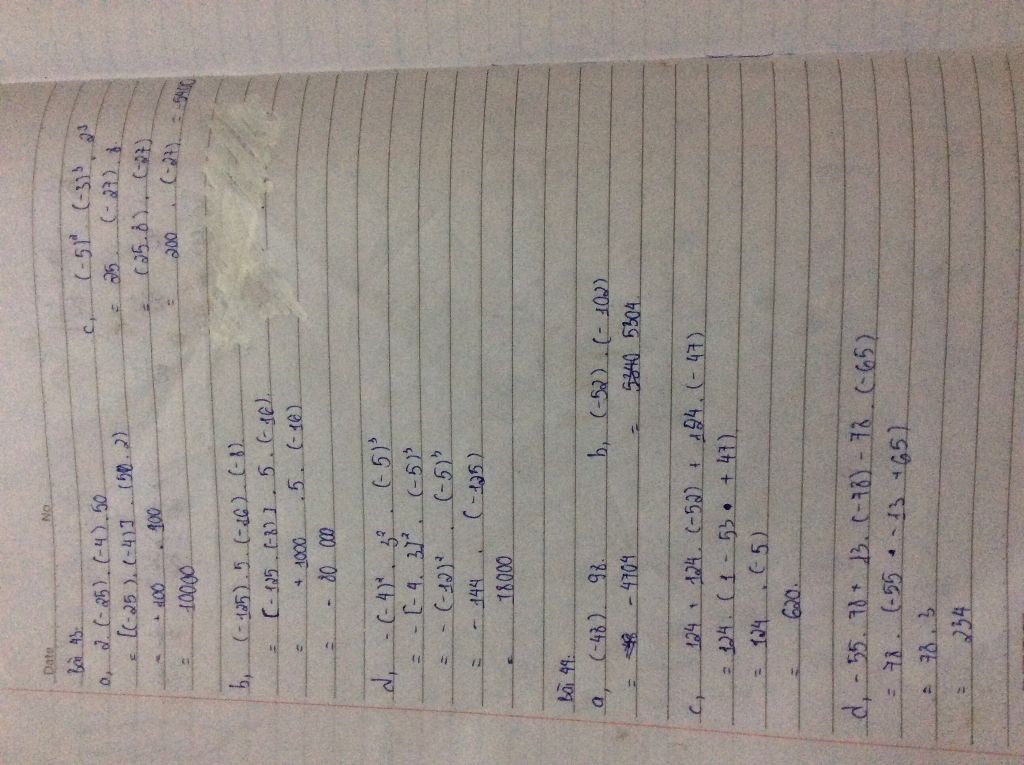 Date No
Bài 43:
a, 2.(-25).(-4).50
= [(-25).(-4)].(50.2)
= +100.100
= 10000
c, (-5)².(-3)³.2³
= 25.(-27).8
= (25.8).(-27)
= 200.(-27) = -5400
b, (-125).5.(-16).(-8)
= [-125.(-8)].5.(-16).
= +1000.5.(-16)
= -80 000
d, -(-4)².3².(-5)³
= -[-4.3]².(-5)³
= -(-12)².(-5)³
= -144.(-125)
= 18000
Bài 44:
a, (-48).98.
= -4704
b, (-52).(-102)
= 5340 5304
c, 124+124.(-52)+124.(-47)
= 124.(1-53+47)
= 124.(-5)
= 620.
d, -55.78+13.(-78)-78.(-65)
= 78.(-55+-13+65)
= 78.3
= 234